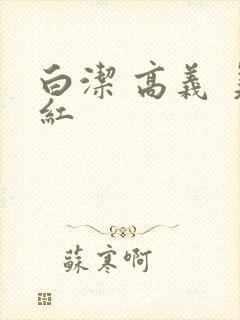 白潔 高義
紅
蘇寒啊